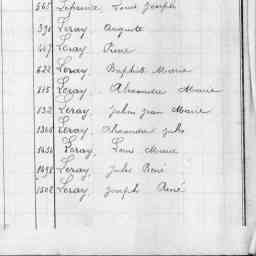 565 Leprince, Louis Joseph
390 Leray, Auguste
447 Leray, René
622 Leray, Baptiste Marie
815 Leray, Alexandre Marie
132 Leray, Julien Jean Marie
1306 Leray, Alexandre Jules
1456 Leray, Louis Marie
1498 Leray, Jules René
1502 Leray, Joseph René